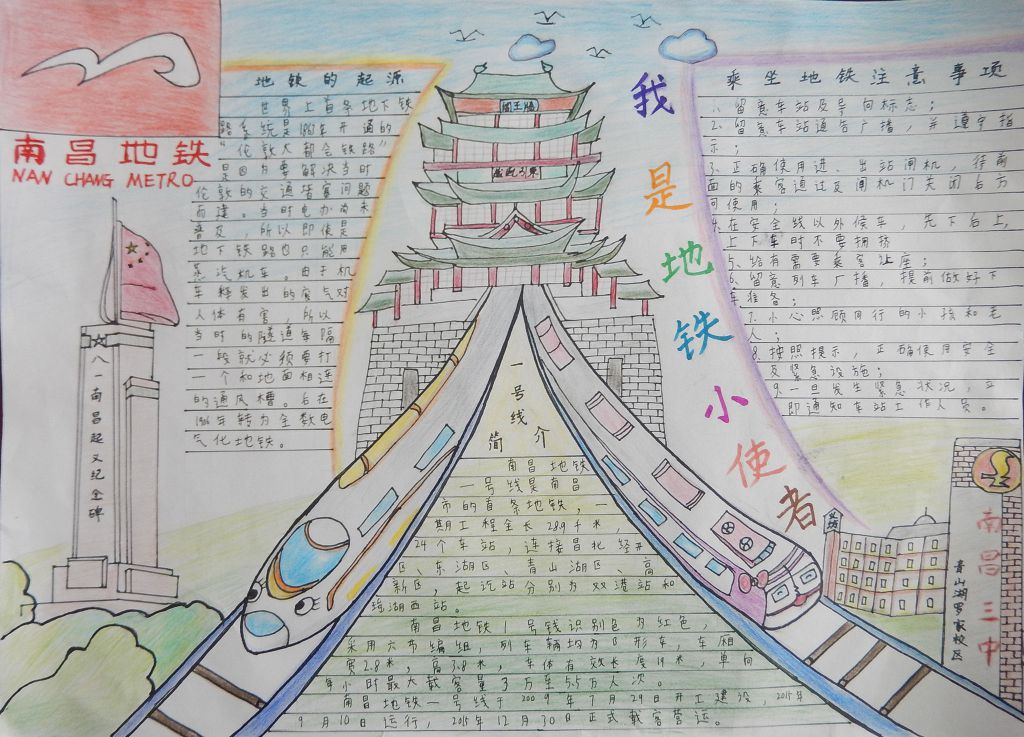 南昌地铁
NAN CHANG METRO
地铁的起源
世界上首条地下铁
路系统是1863年开通的
“伦敦大都会铁路”
是因为要解决当时
伦敦的交通堵塞问题
而建。当时电力尚未
普及，所以即使是
地下铁路也只能用
蒸汽机车。由于机
车释发出的废气对
人体有害，所以
当时的隧道每隔
一段就必须要打
一个和地面相连
的通风槽。后在
年转为全数电
气化地铁。
八一南昌起义纪念碑
滕王阁
我是地铁小使者
乘坐地铁注意事项
1、留意车站及导向标志；
2、留意车站通告广播，并遵守指
示；
3、正确使用进、出站闸机，待前
面的乘客通过及闸机门关闭后方
可使用；
4、在安全线以外候车，先下后上，
上下车时不要拥挤
5、给有需要乘客让座；
6、留意列车广播，提前做好下
车准备；
7、小心照顾同行的小孩和老
人；
8、按照提示，正确使用安全
及紧急设施；
9、一旦发生紧急状况，立
即通知车站工作人员。
一号线
简介
南昌地铁
一号线是南昌
市的首条地铁，一
期工程全长28.9千米，
24个车站，连接昌北经开
区、东湖区、青山湖区、高
新区，起讫站分别为双港站和
瑶湖西站。
南昌地铁1号线识别色为红色，
采用六节编组，列车辆均为B形车，车厢
宽2.8米，高3.8米，车体有效长度19米，单向
每小时最大载客量3万至5.5万人次。
南昌地铁一号线于2009年7月29日开工建设，2015年
9月10日运行，2015年12月30日正式载客营运。
南昌三中
青山湖罗家校区